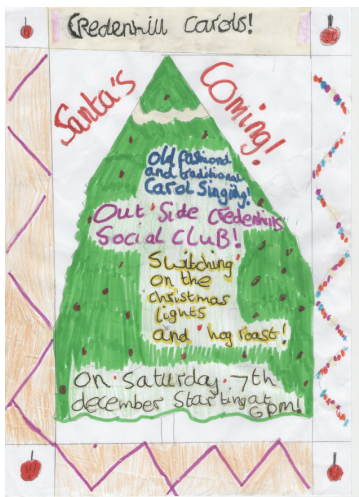 Credenhill Carols!
Santa's Coming!
old fashiond
and traditional
Carol Singing!
Out Side Credenhills
Social CLUB!
Switching
on the
christmas
lights
and hog roast!
on Saturday 7th
december Starting at
6pm!